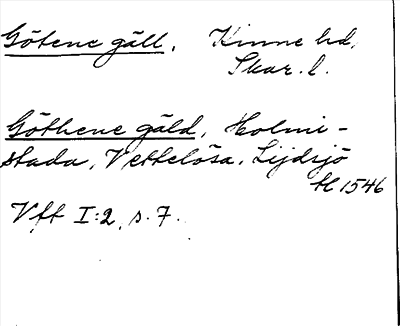 Götene gäll, Kinne hd,
Skar. l.
Göthene gäld, Holmi-
stada, Vettelösa, Lijdsjö
H 1546
Vft I:2, s. 7.